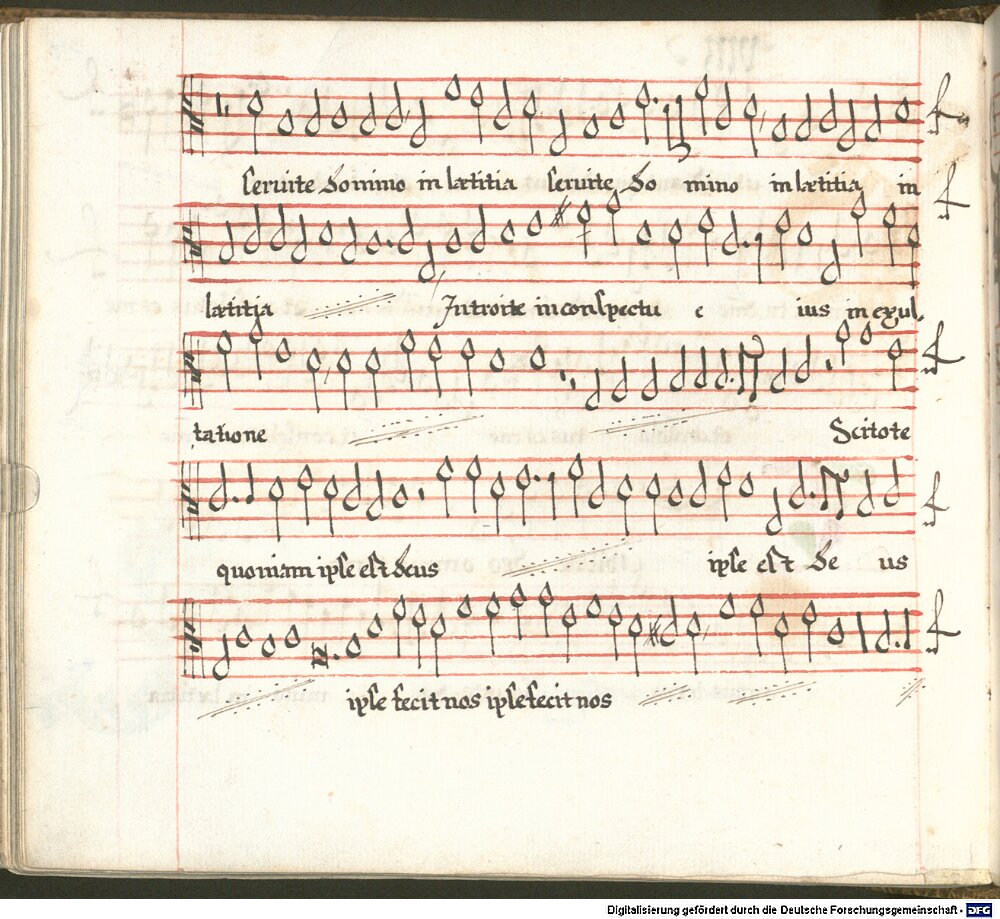 Seruite Domino in lætitia seruite Do mino in lætitia in
lætitia Introite in conspectu e ius in exul,
tatione Scitote
quoniam ipse est Deus ipse est De us
ipse fecit nos ipse fecit nos
Digitalisierung gefördert durch die Deutsche Forschungsgemeinschaft - DFG